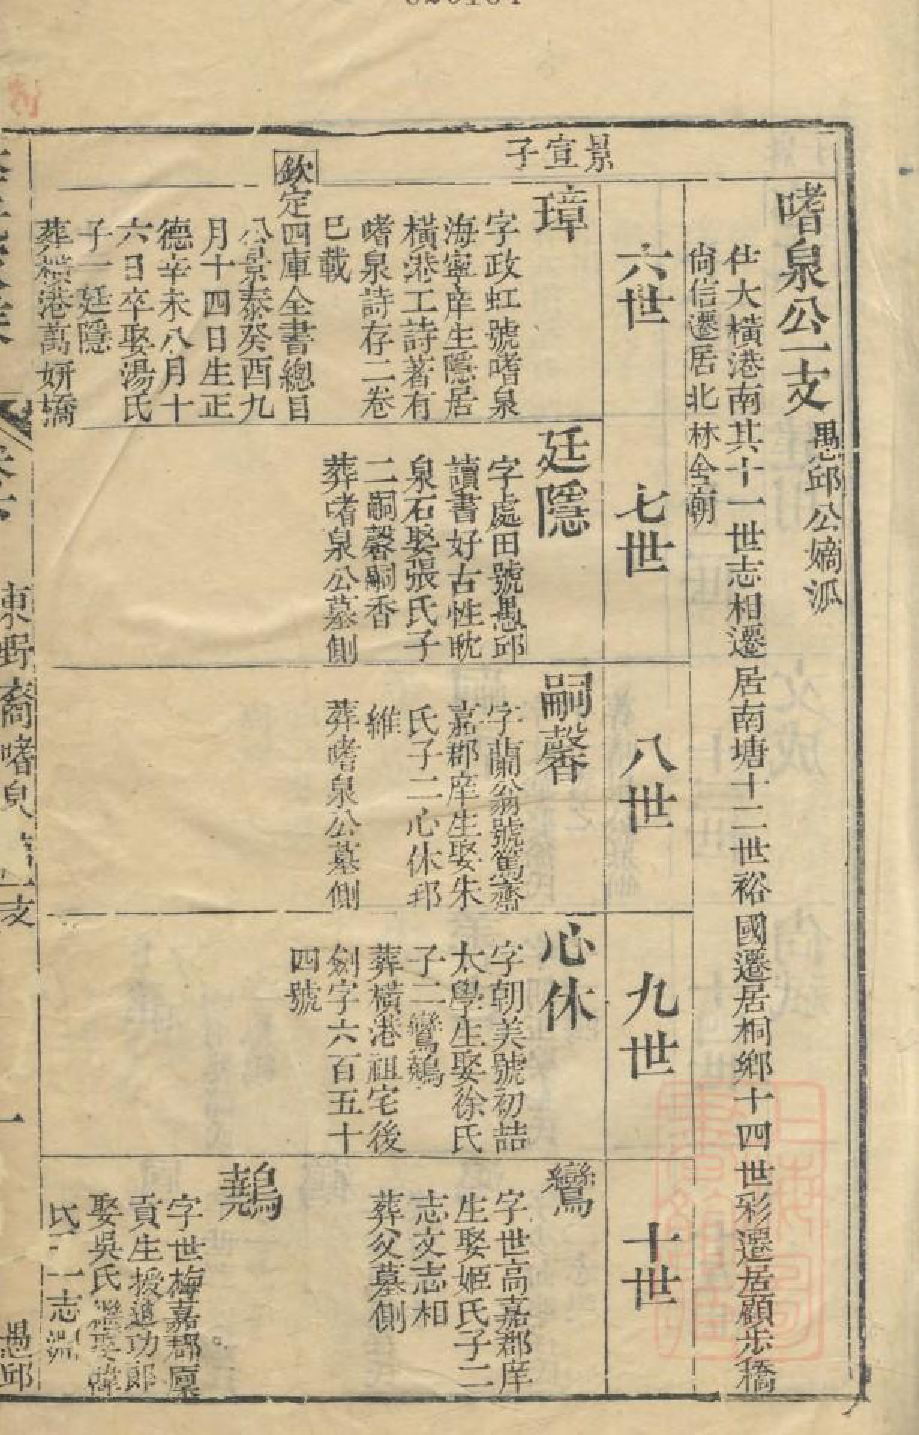 嗜泉公一支
愚邱公嫡派
仕大橫港南其十一世志相遷居南塘十二世裕國遷居桐鄉十四世彩遷居顧步橋
尙信遷居北林全朝
六世
七世
八世
九世
十世
景宣子
璋
字政虹號嗜泉
海寧庠生隱居
橫港工詩著有
嗜泉詩存二卷
巳載
欽定四庫全書總目
公景泰癸酉九
月十四日生正
德辛未八月十
六日卒娶湯氏
子一廷隱
葬橫港萬妍橋
廷隱
字處田號愚邱
讀書好古性眈
泉石娶張氏子
二嗣馨嗣香
葬嗜泉公墓側
嗣馨
字蘭翁號篤齋
嘉郡庠生娶朱
氏子二心休邦
維
葬嗜泉公墓側
心休
字朝美號初喆
太學生娶徐氏
子二鸞鷬
葬橫港祖宅後
劍字六百五十
四號
鸞
字世高嘉郡庠
生娶姬氏子二
志文志相
葬父墓側
鷬
字世梅嘉郡廩
貢生授迪功郎
娶吳氏繼娶韓
氏子一志淵
東野裔嗜泉公一支
一
愚邱